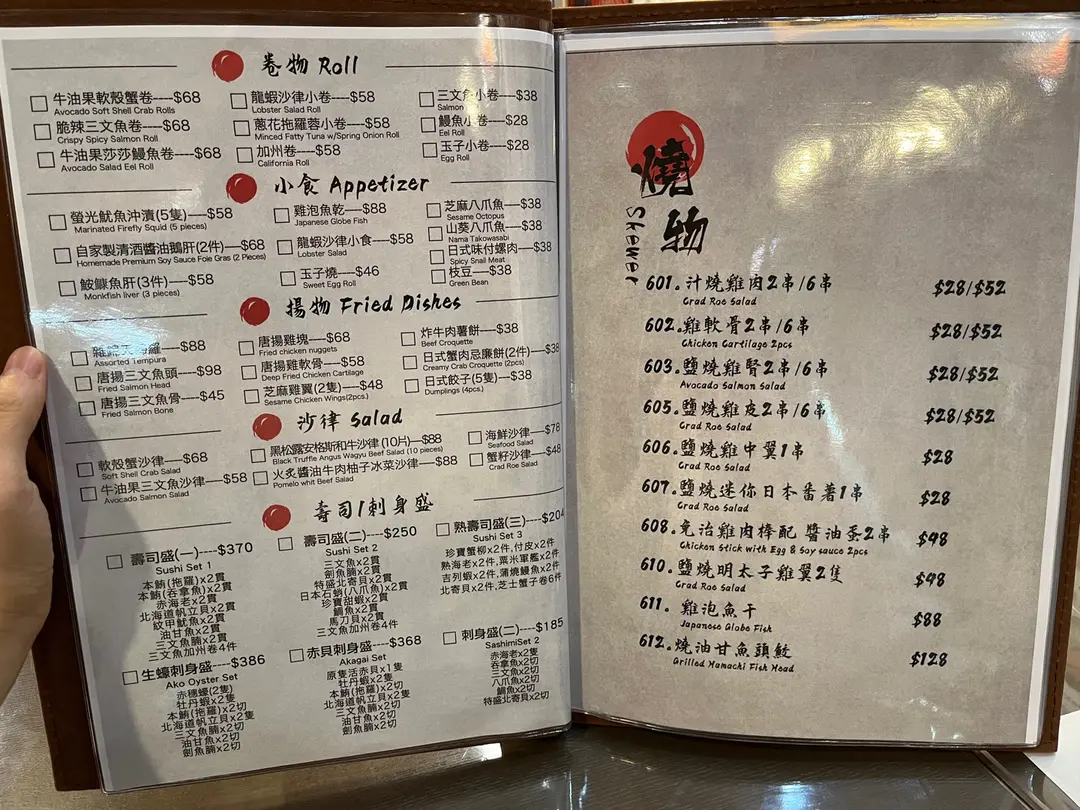 卷物 Roll
牛油果軟殼蟹卷----$68
Avocado Soft Shell Crab Rolls
脆辣三文魚卷----$68
Crispy Spicy Salmon Roll
牛油果莎莎鰻魚卷----$68
Avocado Salad Eel Roll
龍蝦沙律小卷----$58
Lobster Salad Roll
蔥花拖羅蓉小卷----$58
Minced Fatty Tuna w/Spring Onion Roll
加州卷----$58
California Roll
三文魚小卷----$38
Salmon
鰻魚小卷----$28
Eel Roll
玉子小卷----$28
Egg Roll
小食 Appetizer
螢光魷魚沖漬(5隻)----$58
Marinated Firefly Squid (5 pieces)
自家製清酒醬油鵝肝(2件)----$68
Homemade Premium Soy Sauce Foie Gras (2 Pieces)
鮟鱇魚肝(3件)----$58
Monkfish liver (3 pieces)
雞泡魚乾----$88
Japanese Globe Fish
龍蝦沙律小食----$58
Lobster Salad
玉子燒----$46
Sweet Egg Roll
芝麻八爪魚----$38
Sesame Octopus
山葵八爪魚----$38
Nama Takowasabi
日式味付螺肉----$38
Spicy Snail Meat
枝豆----$38
Green Bean
揚物 Fried Dishes
----$88
Assorted Tempura
唐揚三文魚頭----$98
Fried Salmon Head
唐揚三文魚骨----$45
Fried Salmon Bone
唐揚雞塊----$68
Fried chicken nuggets
唐揚雞軟骨----$58
Deep Fried Chicken Cartilage
芝麻雞翼(2隻)----$48
Sesame Chicken Wings(2pcs.)
炸牛肉薯餅----$38
Beef Croquette
日式蟹肉忌廉餅(2件)----$38
Creamy Crab Croquette (2pcs)
日式餃子(5隻)----$38
Dumplings (4pcs.)
沙律 Salad
軟殼蟹沙律----$68
Soft Shell Crab Salad
牛油果三文魚沙律----$58
Avocado Salmon Salad
黑松露安格斯和牛沙律(10片)----$88
Black Truffle Angus Wagyu Beef Salad (10 pieces)
火炙醬油牛肉柚子冰菜沙律----$88
Pomelo whit Beef Salad
海鮮沙律----$78
Seafood Salad
蟹籽沙律----$48
Crad Roe Salad
壽司/刺身盛
壽司盛(一)----$370
Sushi Set 1
本鮪(拖羅)x2貫
本鮪(吞拿魚)x2貫
赤海老x2貫
北海道帆立貝x2貫
紋甲魷魚x2貫
油甘魚x2貫
三文魚腩x2貫
三文魚加州卷4件
壽司盛(二)----$250
Sushi Set 2
三文魚x2貫
劍魚腩x2貫
特盛北寄貝x2貫
日本石蛸(八爪魚)x2貫
珍寶甜蝦x2貫
鯛魚x2貫
馬刀貝x2貫
三文魚加州卷4件
熟壽司盛(三)----$204
Sushi Set 3
珍寶蟹柳x2件,付皮x2件
熟海老x2件,粟米軍艦x2件
吉列蝦x2件,蒲燒鰻魚x2件
北寄貝x2件,芝士蟹子卷6件
生蠔刺身盛----$386
Ako Oyster Set
赤穗蠔(2隻)
牡丹蝦x2隻
本鮪(拖羅)x2切
北海道帆立貝x2隻
三文魚腩x2切
油甘魚x2切
劍魚腩x2切
赤貝刺身盛----$368
Akagai Set
原隻活赤貝x1隻
牡丹蝦x2隻
本鮪(拖羅)x2切
北海道帆立貝x2隻
三文魚腩x2切
油甘魚x2切
劍魚腩x2切
刺身盛(二)----$185
SashimiSet 2
赤海老x2隻
吞拿魚x2切
三文魚x2切
八爪魚x2切
鯛魚x2切
特盛北寄貝x2切
燒物
Skewer
601.汁燒雞肉2串/6串 $28/$52
Crad Roe Salad
602.雞軟骨2串/6串 $28/$52
Chicken Cartilage 2pcs
603.鹽燒雞腎2串/6串 $28/$52
Avocado Salmon Salad
605.鹽燒雞皮2串/6串 $28/$52
Crad Roe Salad
606.鹽燒雞中翼1串 $28
Crad Roe Salad
607.鹽燒迷你日本番薯1串 $28
Crad Roe Salad
608.免治雞肉棒配 醬油蛋2串 $48
Chicken Stick with Egg & Soy sauce 2pcs
610.鹽燒明太子雞翼2隻 $48
Crad Roe Salad
611. 雞泡魚干 $88
Japanese Globe Fish
612.燒油甘魚頭鮫 $128
Grilled Hamachi Fish Head